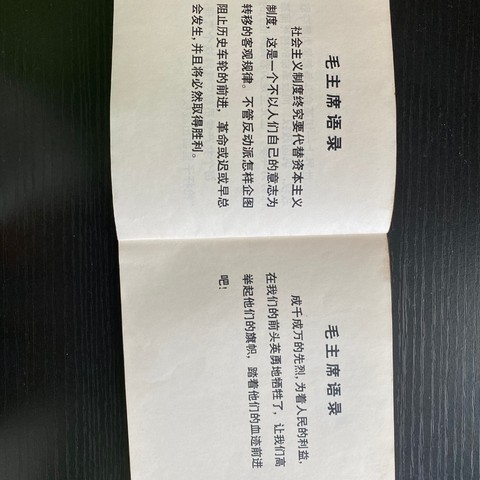 毛主席语录
社会主义制度终究要代替资本主义
制度，这是一个不以人们自己的意志为
转移的客观规律。不管反动派怎样企图
阻止历史车轮的前进，革命或迟或早总
会发生，并且将必然取得胜利。
毛主席语录
成千成万的先烈，为着人民的利益，
在我们的前头英勇地牺牲了，让我们高
举起他们的旗帜，踏着他们的血迹前进
吧！